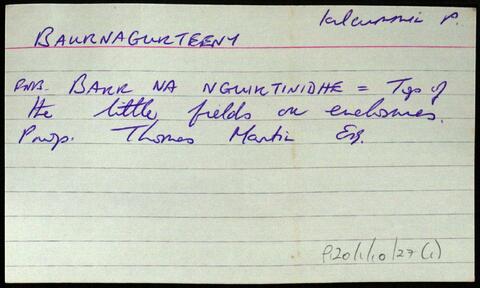 Kilcummin P.
BAURNAGURTEENY
BARR NA NGUIRTINIDHE = Top of
the little fields or enclosures.
Prop. Thomas Martin Esq.
P120/1/10/27(1)